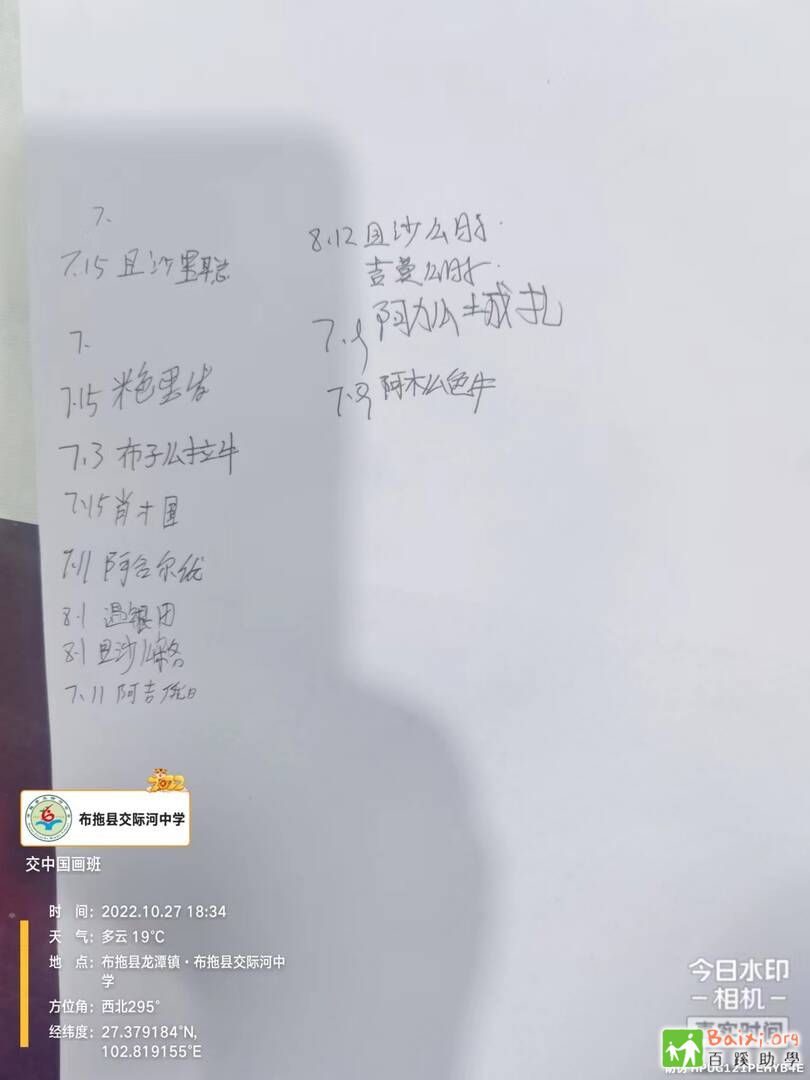 7.
7.15 且沙里聪
7.
7.15 米色里发
7.3 布子么拉牛
7.15 肖十国
7.11 阿合尔优
8.1 温银团
8.1 且沙么略
7.11 阿吉
8.12 且沙么日扎
吉曼么日扎
7.9 阿力么土成扎
7.9 阿木么色牛
2022
布拖县交际河中学
交中国画班
时 间：2022.10.27 18:34
天 气：多云 19℃
地 点：布拖县龙潭镇·布拖县交际河中
学
方位角：西北295°
经纬度：27.379184°N,
102.819155°E
今日水印
-相机-
真实时间
Baixi.org
百蹊助學